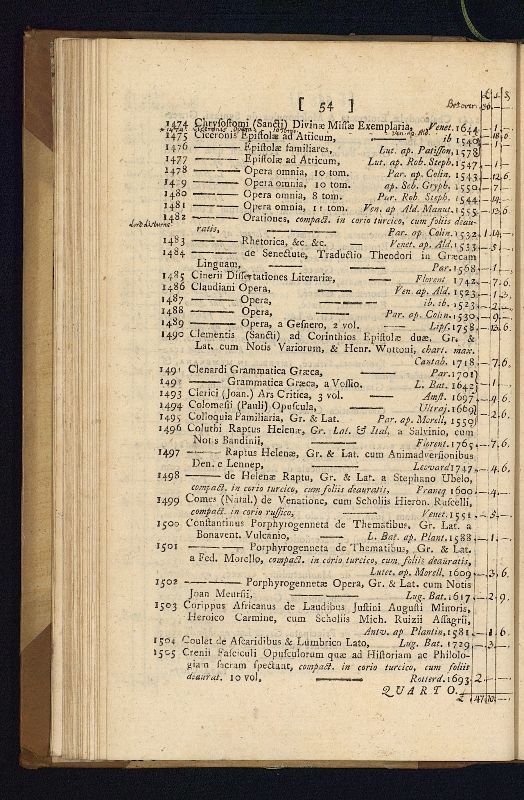 [ 54 ]
Bt over
1474 Chrysostomi (Sancti) Divinæ Missæ Exemplaria, Venet. 1644
1475 Ciceronis Epistolæ ad Atticum, ib 1540
1476 —— Epistolæ familiares, Lut. ap. Patisson, 1578
1477 —— Epistolæ ad Atticum, Lut. ap. Rob. Steph. 1547
1478 —— Opera omnia, 10 tom. Par. ap. Colin. 1543
1479 —— Opera omnia, 10 tom. ap. Seb. Gryph. 1550
1480 —— Opera omnia, 8 tom. Par. Rob. Steph. 1544
1481 —— Opera omnia, 11 tom. Ven. ap Ald. Manut. 1555
1482 —— Orationes, compact. in corio turcico, cum foliis deau-
ratis, Par. ap. Colin. 1532
1483 —— Rhetorica, &c. &c. — Venet. ap. Ald. 1533
1484 —— de Senectute, Traductio Theodori in Græcam
Linguam, —— Par. 1568
1485 Cinerii Dissertationes Literariæ, — Florent. 1742
1486 Claudiani Opera, —— Ven. ap. Ald. 1523
1487 —— Opera, —— ib. ib. 1523
1488 —— Opera, —— Par. ap. Colin. 1530
1489 —— Opera, a Gesnero, 2 vol. —— Lips. 1758
1490 Clementis (Sancti) ad Corinthios Epistolæ duæ, Gr. &
Lat. cum Notis Variorum, & Henr. Wottoni, chart. max.
Cantab. 1718
1491 Clenardi Grammatica Græca, —— Par. 1701
1492 —— Grammatica Græca, a Vossio. L. Bat. 1642
1493 Clerici (Joan.) Ars Critica, 3 vol. —— Amst. 1697
1494 Colomesii (Pauli) Opuscula, —— Ultraj. 1669
1495 Colloquia Familiaria, Gr. & Lat. Par. ap. Morell, 1550
1496 Coluthi Raptus Helenæ, Gr. Lat. & Ital. a Salvinio, cum
Notis Bandinii, —— Florent. 1765
1497 —— Raptus Helenæ, Gr. & Lat. cum Animadversionibus
Den. e Lennep, —— Leovard 1747
1498 —— de Helenæ Raptu, Gr. & Lat. a Stephano Ubelo,
compact. in corio turcico, cum foliis deauratis, Franeq 1600
1499 Comes (Natal.) de Venatione, cum Scholiis Hieron. Ruscelli,
compact. in corio russico, —— Venet. 1551
1500 Constantinus Porphyrogenneta de Thematibus, Gr. Lat. a
Bonavent. Vulcanio, —— L. Bat. ap. Plant. 1588
1501 —— Porphyrogenneta de Thematibus, Gr. & Lat.
a Fed. Morello, compact. in corio turcico, cum foliis deauratis,
Lutet. ap. Morell. 1609
1502 —— Porphyrogennetæ Opera, Gr. & Lat. cum Notis
Joan Meursii, —— Lug. Bat. 1617
1503 Corippus Africanus de Laudibus Justini Augusti Minoris,
Heroico Carmine, cum Scholiis Mich. Ruizii Assagrii,
Antw. ap Plantin, 1581
1504 Coulet de Ascaridibus & Lumbrico Lato, Lug. Bat. 1729
1505 Crenii Fasciculi Opusculorum quæ ad Historiam ac Philolo-
giam sacram spectant, compact. in corio turcico, cum foliis
deaurat. 10 vol. —— Rotterd. 1693
QUARTO.